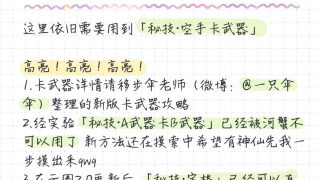 这里依旧需要用到「秘技·空手卡武器」
高亮！高亮！高亮！
1.卡武器详情请移步伞老师（微博：@一只伞
伞）整理的新版卡武器攻略
2.经实验「秘技·A武器卡B武器」已经被河蟹不
可以用了 新方法还在摸索中希望有神仙先我一
步摸出来qwq